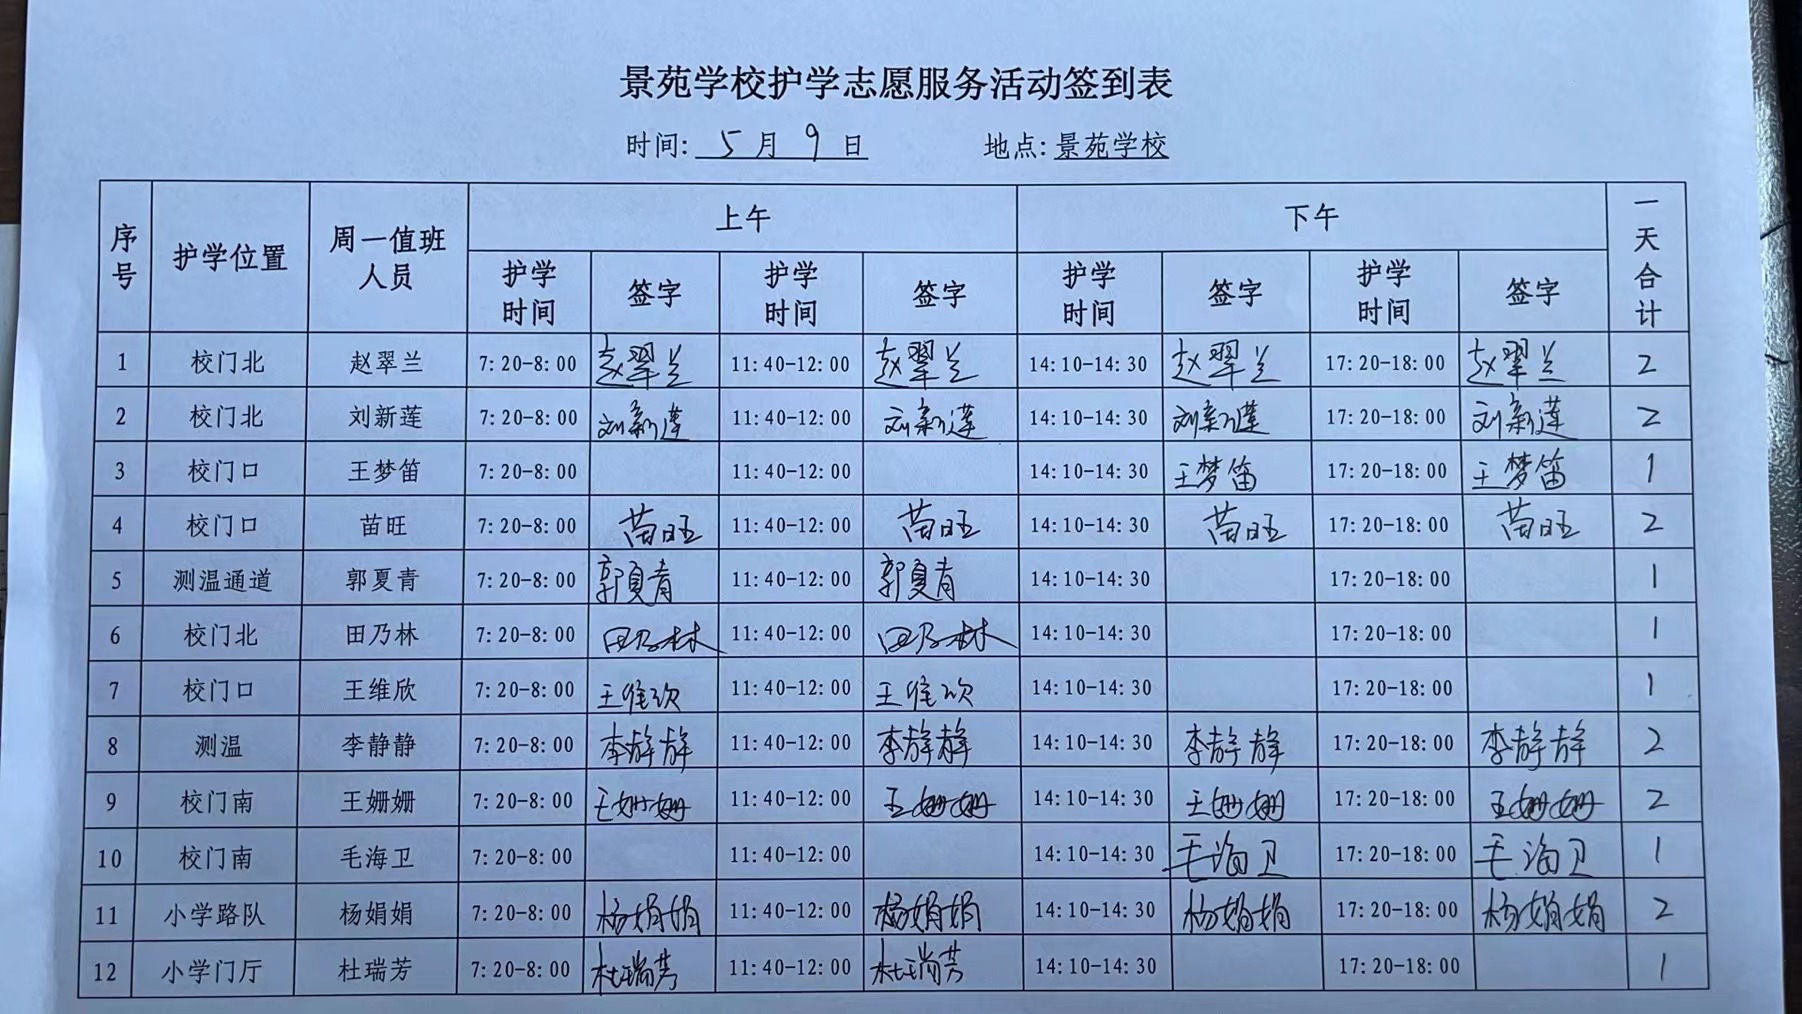 景苑学校护学志愿服务活动签到表
时间: 5 月 9 日 地点: 景苑学校
序号 护学位置 周一值班人员 上午 下午 一天合计
护学时间 签字 护学时间 签字 护学时间 签字 护学时间 签字
1 校门北 赵翠兰 7:20-8:00 赵翠兰 11:40-12:00 赵翠兰 14:10-14:30 赵翠兰 17:20-18:00 赵翠兰 2
2 校门北 刘新莲 7:20-8:00 刘新莲 11:40-12:00 刘新莲 14:10-14:30 刘新莲 17:20-18:00 刘新莲 2
3 校门口 王梦笛 7:20-8:00 11:40-12:00 14:10-14:30 王梦笛 17:20-18:00 王梦笛 1
4 校门口 苗旺 7:20-8:00 苗旺 11:40-12:00 苗旺 14:10-14:30 苗旺 17:20-18:00 苗旺 2
5 测温通道 郭夏青 7:20-8:00 郭夏青 11:40-12:00 郭夏青 14:10-14:30 17:20-18:00 1
6 校门北 田乃林 7:20-8:00 田乃林 11:40-12:00 田乃林 14:10-14:30 17:20-18:00 1
7 校门口 王维欣 7:20-8:00 王维欣 11:40-12:00 王维欣 14:10-14:30 17:20-18:00 1
8 测温 李静静 7:20-8:00 李静静 11:40-12:00 李静静 14:10-14:30 李静静 17:20-18:00 李静静 2
9 校门南 王姗姗 7:20-8:00 王姗姗 11:40-12:00 王姗姗 14:10-14:30 王姗姗 17:20-18:00 王姗姗 2
10 校门南 毛海卫 7:20-8:00 11:40-12:00 14:10-14:30 毛海卫 17:20-18:00 毛海卫 1
11 小学路队 杨娟娟 7:20-8:00 杨娟娟 11:40-12:00 杨娟娟 14:10-14:30 杨娟娟 17:20-18:00 杨娟娟 2
12 小学门厅 杜瑞芳 7:20-8:00 杜瑞芳 11:40-12:00 杜瑞芳 14:10-14:30 17:20-18:00 1